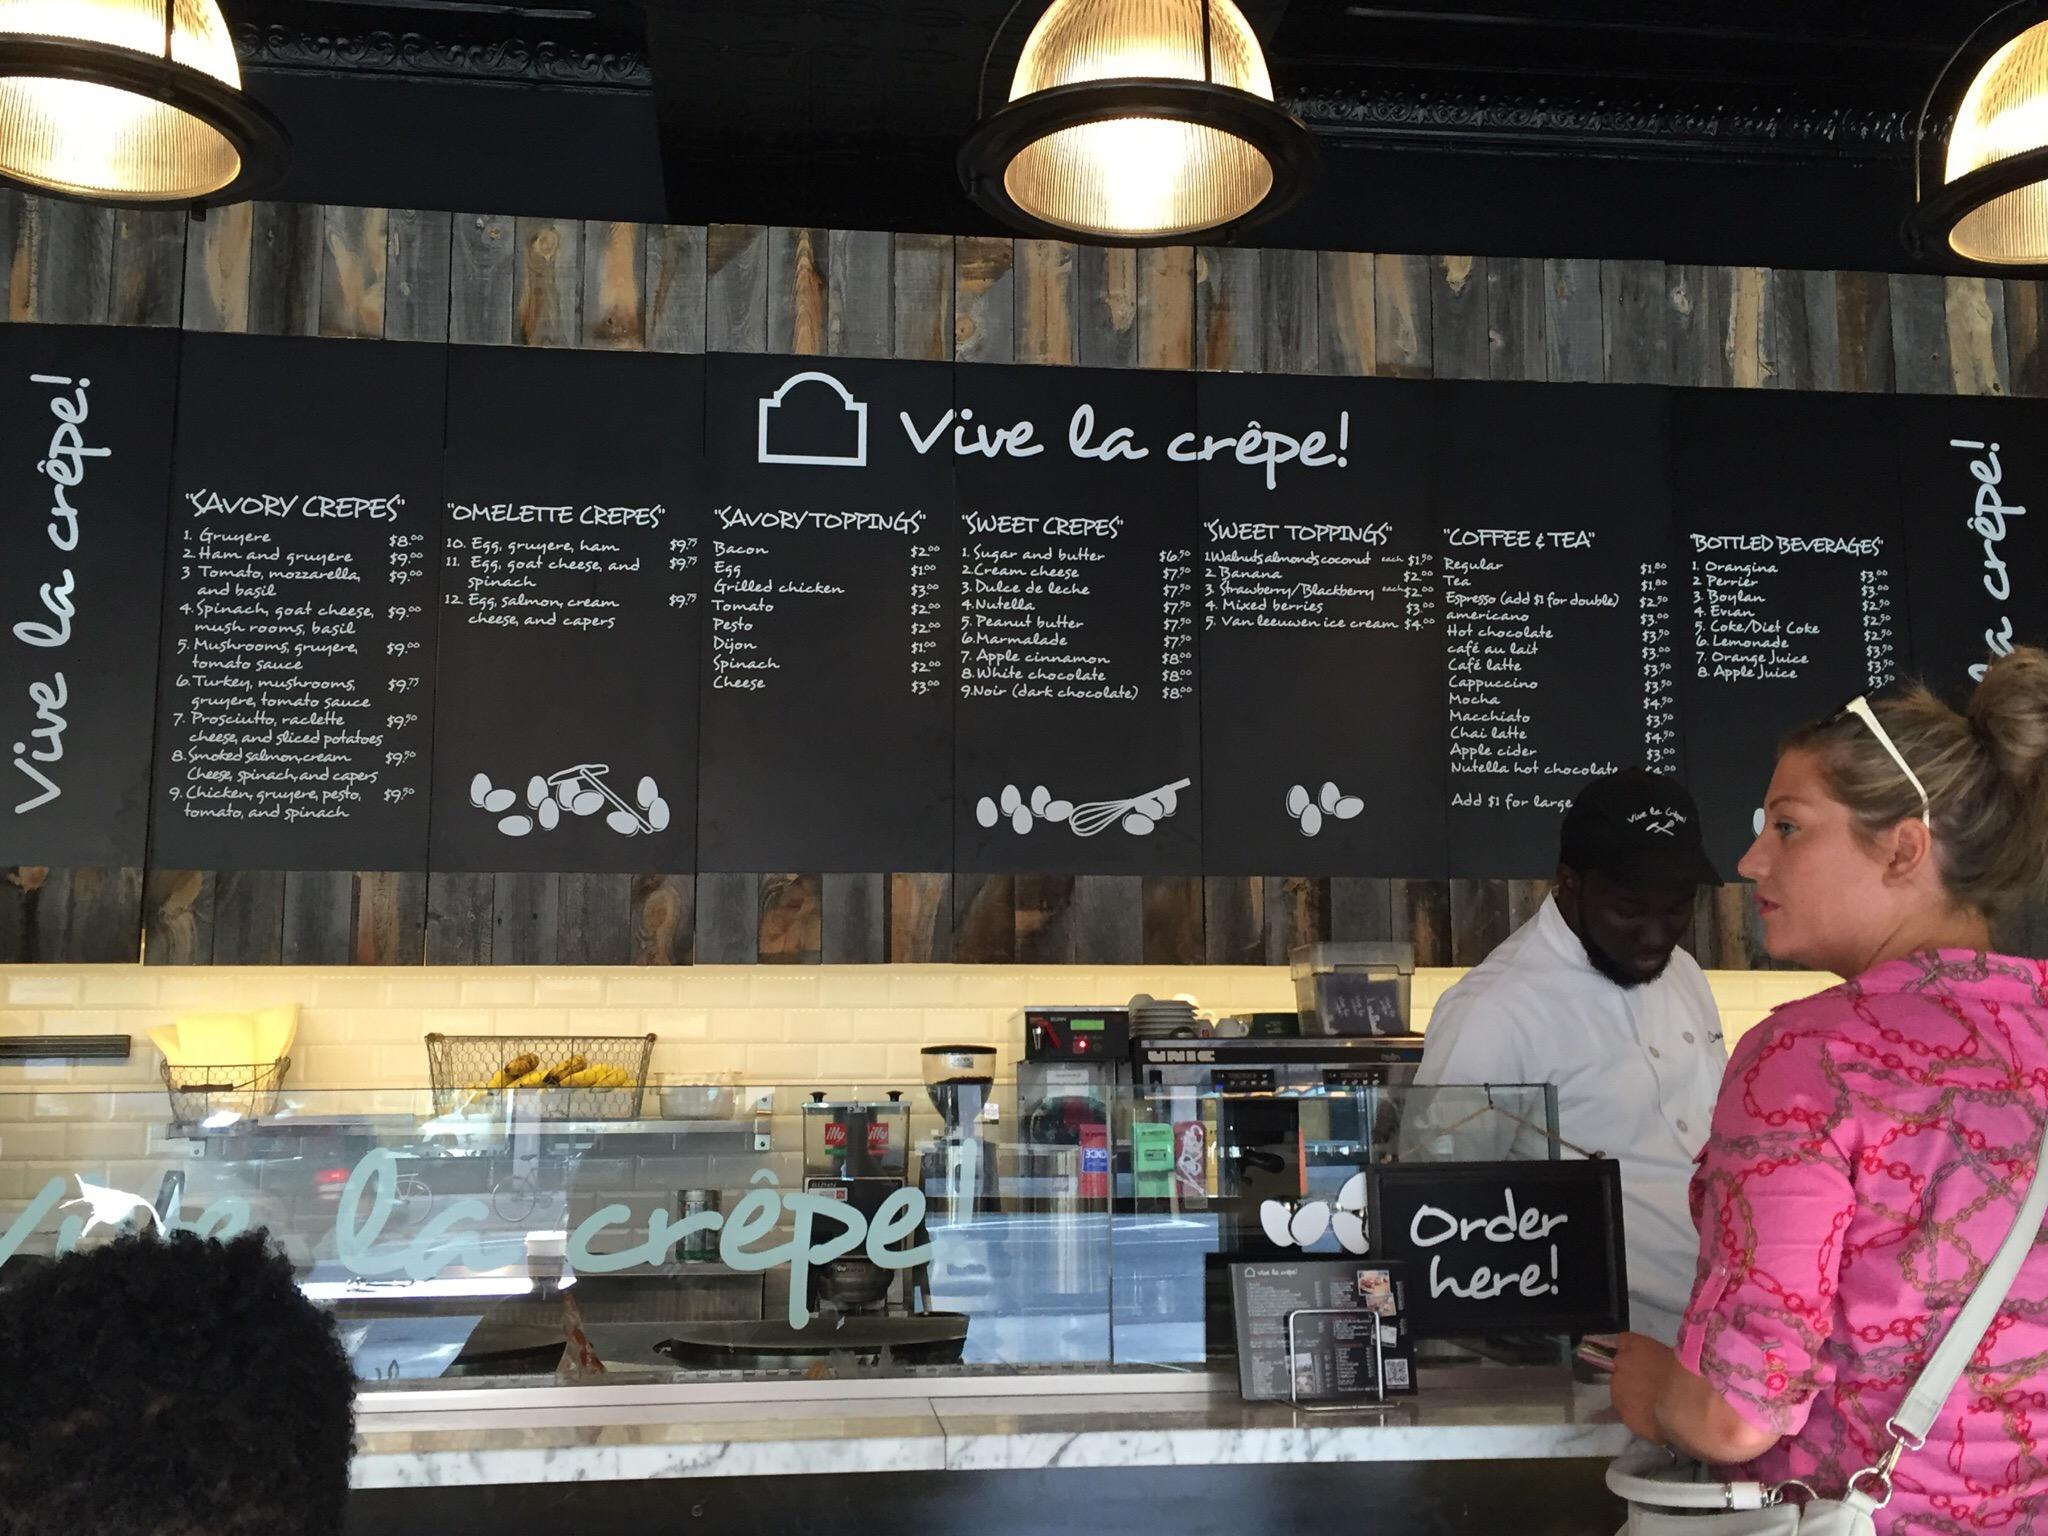 Vive la crêpe!
Vive la crêpe!
"SAVORY CREPES"
1. Gruyere $8.00
2. Ham and gruyere $9.00
3 Tomato, mozzarella, $9.00
and basil
4. Spinach, goat cheese, $9.00
mush rooms, basil
5. Mushrooms, gruyere, $9.00
tomato sauce
6. Turkey, mushrooms, $9.75
gruyere, tomato sauce
7. Prosciutto, raclette $9.50
cheese, and sliced potatoes
8. Smoked salmon, cream $9.50
Cheese, spinach, and capers
9. Chicken, gruyere, pesto, $9.50
tomato, and spinach
"OMELETTE CREPES"
10. Egg, gruyere, ham $9.75
11. Egg, goat cheese, and $9.75
spinach
12. Egg, salmon, cream $9.75
cheese, and capers
"SAVORY TOPPINGS"
Bacon $2.00
Egg $1.00
Grilled chicken $3.00
Tomato $2.00
Pesto $2.00
Dijon $1.00
Spinach $2.00
Cheese $3.00
"SWEET CREPES"
1. Sugar and butter $6.50
2. Cream cheese $7.50
3. Dulce de leche $7.50
4. Nutella $7.50
5. Peanut butter $7.50
6. Marmalade $7.50
7. Apple cinnamon $8.00
8. White chocolate $8.00
9. Noir (dark chocolate) $8.00
"SWEET TOPPINGS"
1. Walnuts almonds coconut each $1.50
2. Banana $2.00
3. Strawberry/Blackberry each $2.00
4. Mixed berries $3.00
5. Van leeuwen ice cream $4.00
"COFFEE & TEA"
Regular $1.80
Tea $1.80
Espresso (add $1 for double) $2.50
americano $3.00
Hot chocolate $3.50
café au lait $3.00
Café latte $3.50
Cappuccino $3.50
Mocha $4.50
Macchiato $3.50
Chai latte $4.50
Apple cider $3.00
Nutella hot chocolate
Add $1 for large
"BOTTLED BEVERAGES"
1. Orangina $3.00
2. Perrier $3.00
3. Boylan $2.50
4. Evian $2.50
5. Coke/Diet Coke $2.50
6. Lemonade $3.50
7. Orange Juice $3.50
8. Apple Juice $3.50
la crêpe!
Vive la Crêpe!
UNIC
BUNN
illy illy
BUNN
vive la crêpe!
Order
here!
vive la crêpe!